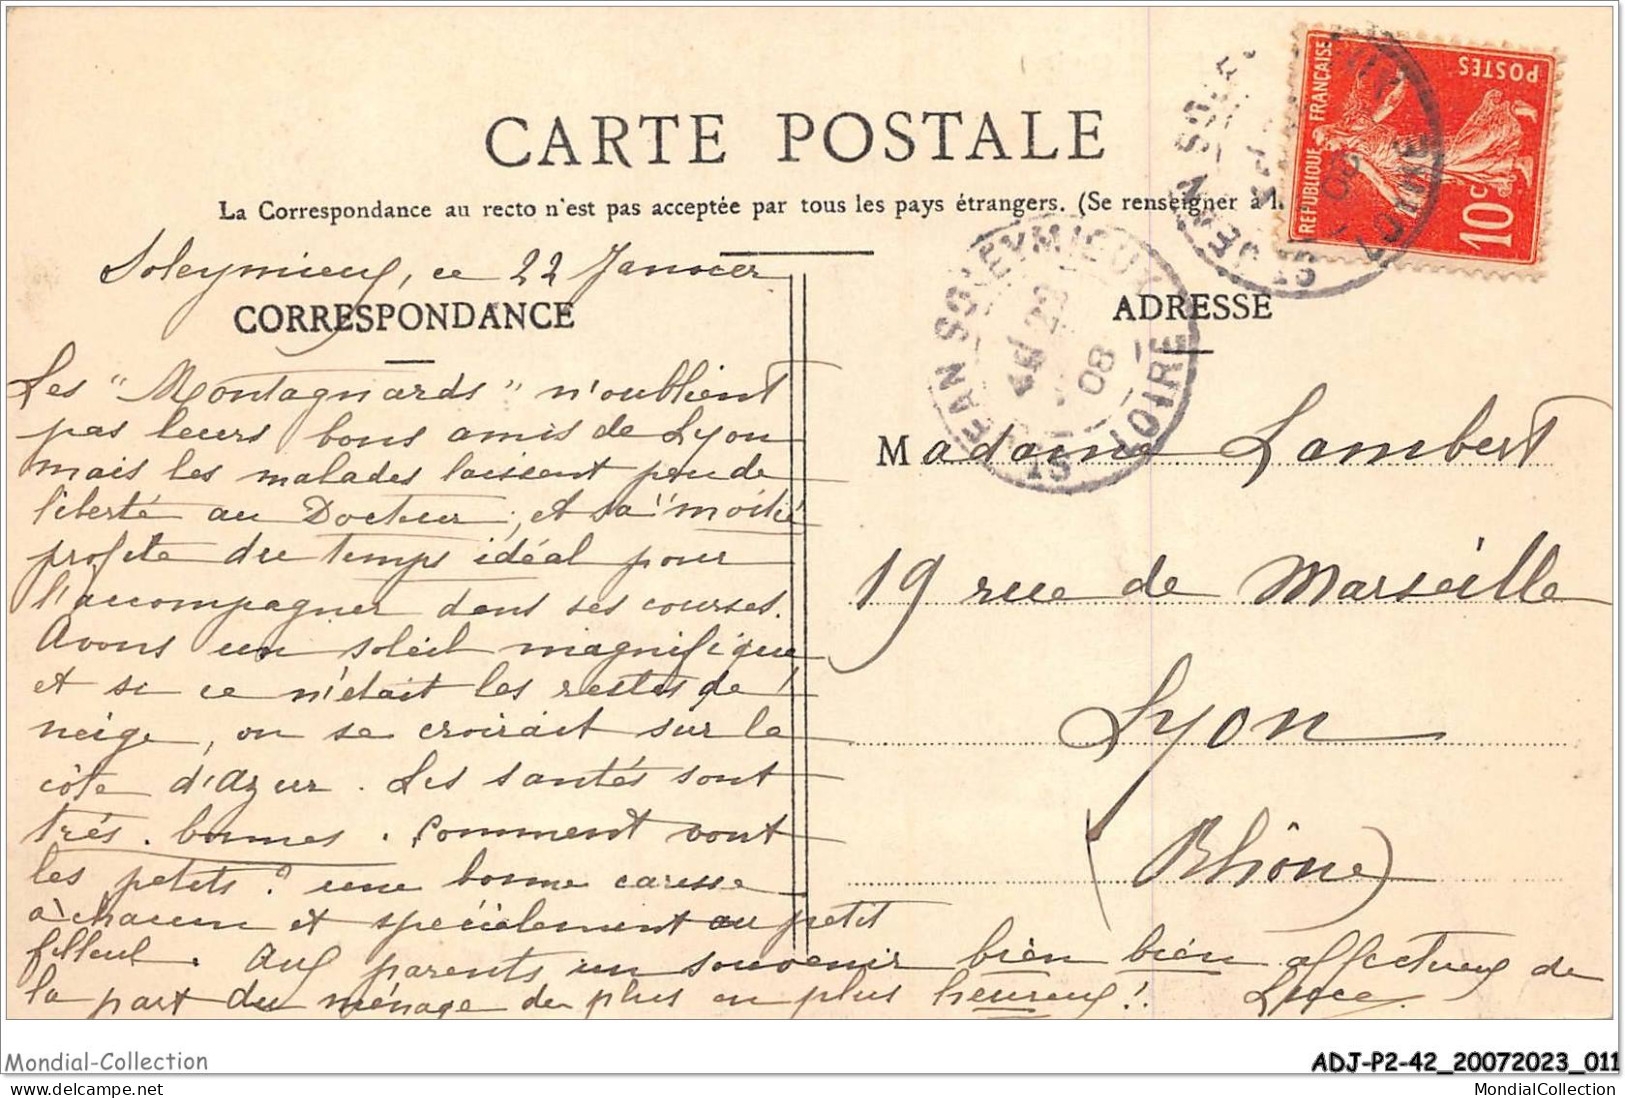 CARTE POSTALE
La Correspondance au recto n'est pas acceptée par tous les pays étrangers. (Se renseigner à l
RÉPUBLIQUE FRANÇAISE
POSTES
10c
ST JEAN SOLEYMIEUX
22
08
LOIRE
Soleymieux, ce 22 Janvier
CORRESPONDANCE
Les "Montagnards" n'oublient
pas leurs bons amis de Lyon
mais les malades laissent peu de
liberté au Docteur, et sa "moitié
profite du temps idéal pour
l'accompagner dans ses courses.
Avons un soleil magnifique
et si ce n'était les restes de
neige, on se croirait sur la
côte d'Azur. Les santés sont
très bonnes. Comment vont
les petits? une bonne caresse
à chacun et spécialement au petit
filleul. Aux parents un souvenir bien bien affectueux de
la part du ménage de plus en plus heureux! Luce.
ADRESSE
Madame Lambert
19 rue de Marseille
Lyon
(Rhône)
Mondial-Collection
ADJ-P2-42_20072023_011
MondialCollection